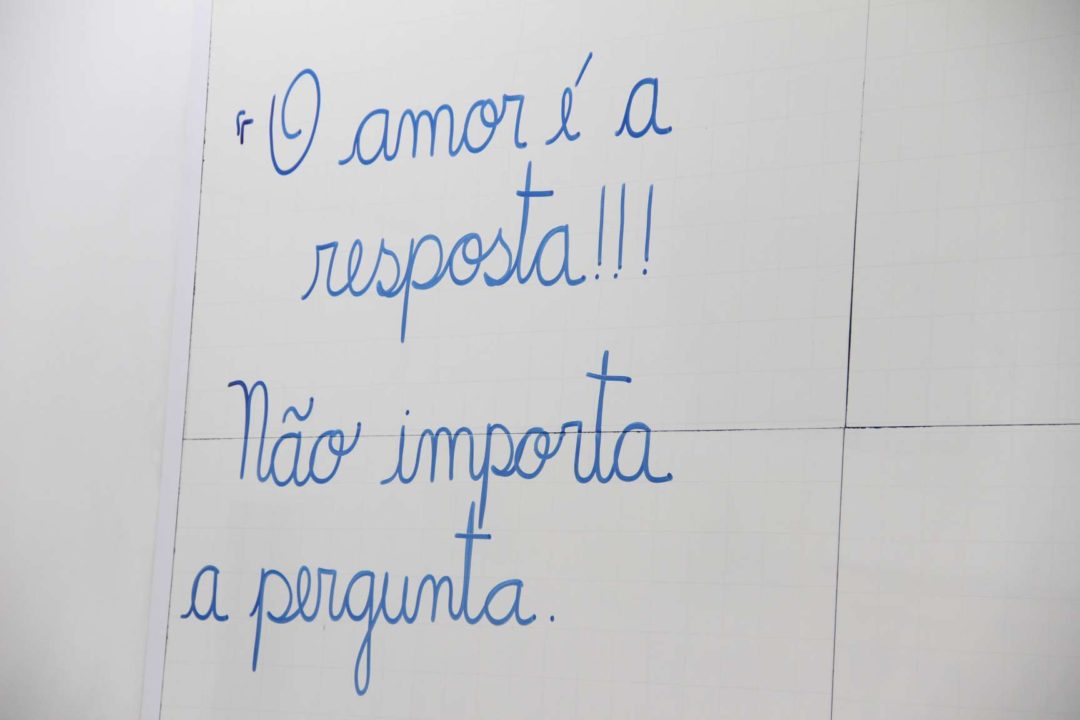 "O amor é a
resposta!!!
Não importa
a pergunta.